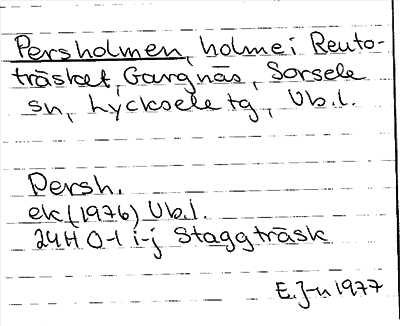 Persholmen, holme i Reuto-
träsket, Gargnäs, Sorsele
sn, Lycksele tg, Vb.l.
Persh.
ek (1976) Vb.l.
24H 0-1 i-j Staggträsk
E. J-n 1977